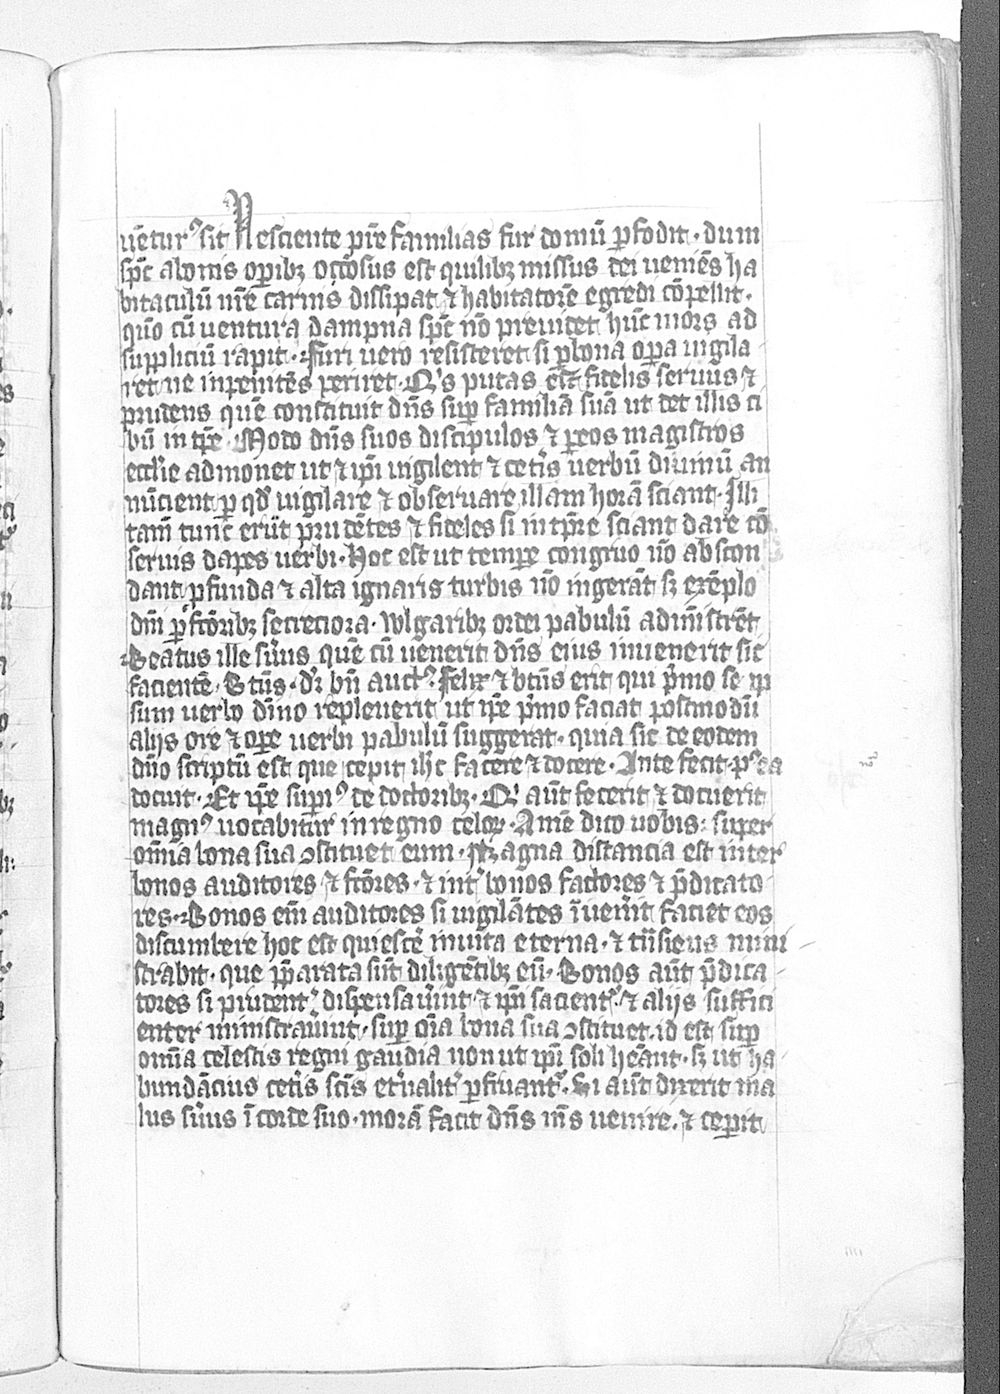 uēturꝰ sit Nesciente pr̄e familias fur domū ꝑfodit · dum
spc̄ a bonis oꝑibꝫ occōsus est quilibꝫ missus dei ueniēs ha
bitaculū nr̄e carnis dissipat ⁊ habitatorē egredi cōpellit ·
quō cū uentura dampna spc̄ nō preuidet hūc mors ad
suppliciū rapit · Furi uero resisteret si ꝑ bona oꝑa uigila
ret ne inpenitēs periret · Qͥs putas est fidelis seruus ⁊
prudens quē constituit dn̄s suꝑ familiā suā ut det illis ci
bū in tp̄e · Modo dn̄s suos discipulos ⁊ ꝑ eos magistros
eccl̄ie admonet ut ⁊ ip̄i uigilent ⁊ cetīs uerbū diuinū an
nūcient ꝑ qd̄ uigilare ⁊ obseruare illam horā sciant · Illi
tam̄ tunc erūt prudētes ⁊ fideles si in tp̄re sciant dare cō
seruis dapes uerbi · Hoc est ut tempe congruo nō abscon
dant ꝓfunda ⁊ alta ignaris turbis nō ingerāt sꝫ exēplo
dn̄i ꝑfcōribꝫ secreciora · wlgaribꝫ ordei pabulū admīstrēt
Beatus ille sūus quē cū uenerit dn̄s eius inuenerit sic
facientē · Btūs · dr̄ bn̄ auctꝰ · felix ⁊ btūs erit qui pͥmo se ip
sum uerbo dīno repleuerit ut ip̄e pͥmo faciat postmodū
alijs ore ⁊ oꝑe uerbi pabulū suggerat · quia sic de eodem
dn̄o scriptū est que cepit ihc̄ facere ⁊ docere · Ante fecit · pꝰea
docuit · Et ip̄e supiꝰ de doctoribꝫ · Qͥ aūt fecerit ⁊ docuerit
magnꝰ uocabitur in regno celoꝝ · Amē dico uobis : super
omīa bona sua ꝯstituet eum · Magna distancia est inter
bonos auditores ⁊ fcōres · ⁊ int̄ bonos factores ⁊ p̄dicato
res · Bonos eīm auditores si uigilātes īuen̄it faciet eos
discumbere hoc est quiescē in uita eterna · ⁊ trn̄siens mini
strabit · que p̄ꝑarata sūt diligētibꝫ eū · Bonos aūt p̄dica
tores si prudentꝰ dispensaūint · ⁊ ip̄i facientꝰ ⁊ alijs suffici
enter ministraūint · suꝑ oīa bona sua ꝯstituet · id est suꝑ
omīa celestis regni gaudia non ut ip̄i soli hēant · sꝫ ut ha
bundācius cetīs scīs etn̄alitꝰ ꝑfruantꝰ · Si aūt dixerit ma
lus sūus ī corde suo · morā facit dn̄s m̄s uenire · ⁊ ceperit